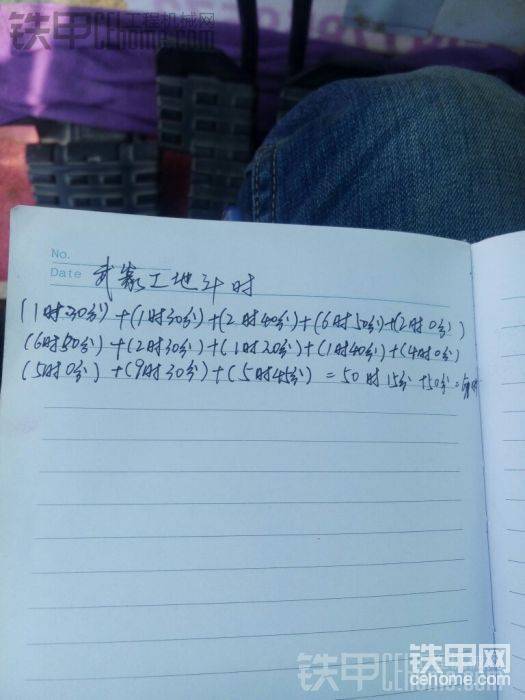 铁甲工程机械网
cehome.com
No.
Date 武家工地计时
(1时30分)+(1时30分)+(2时40分)+(6时50分)+(2时0分)
(6时50分)+(2时30分)+(1时20分)+(1时40分)+(4时0分)
(5时0分)+(9时30分)+(5时45分)=50时15分+50分=
铁甲网
cehome.com